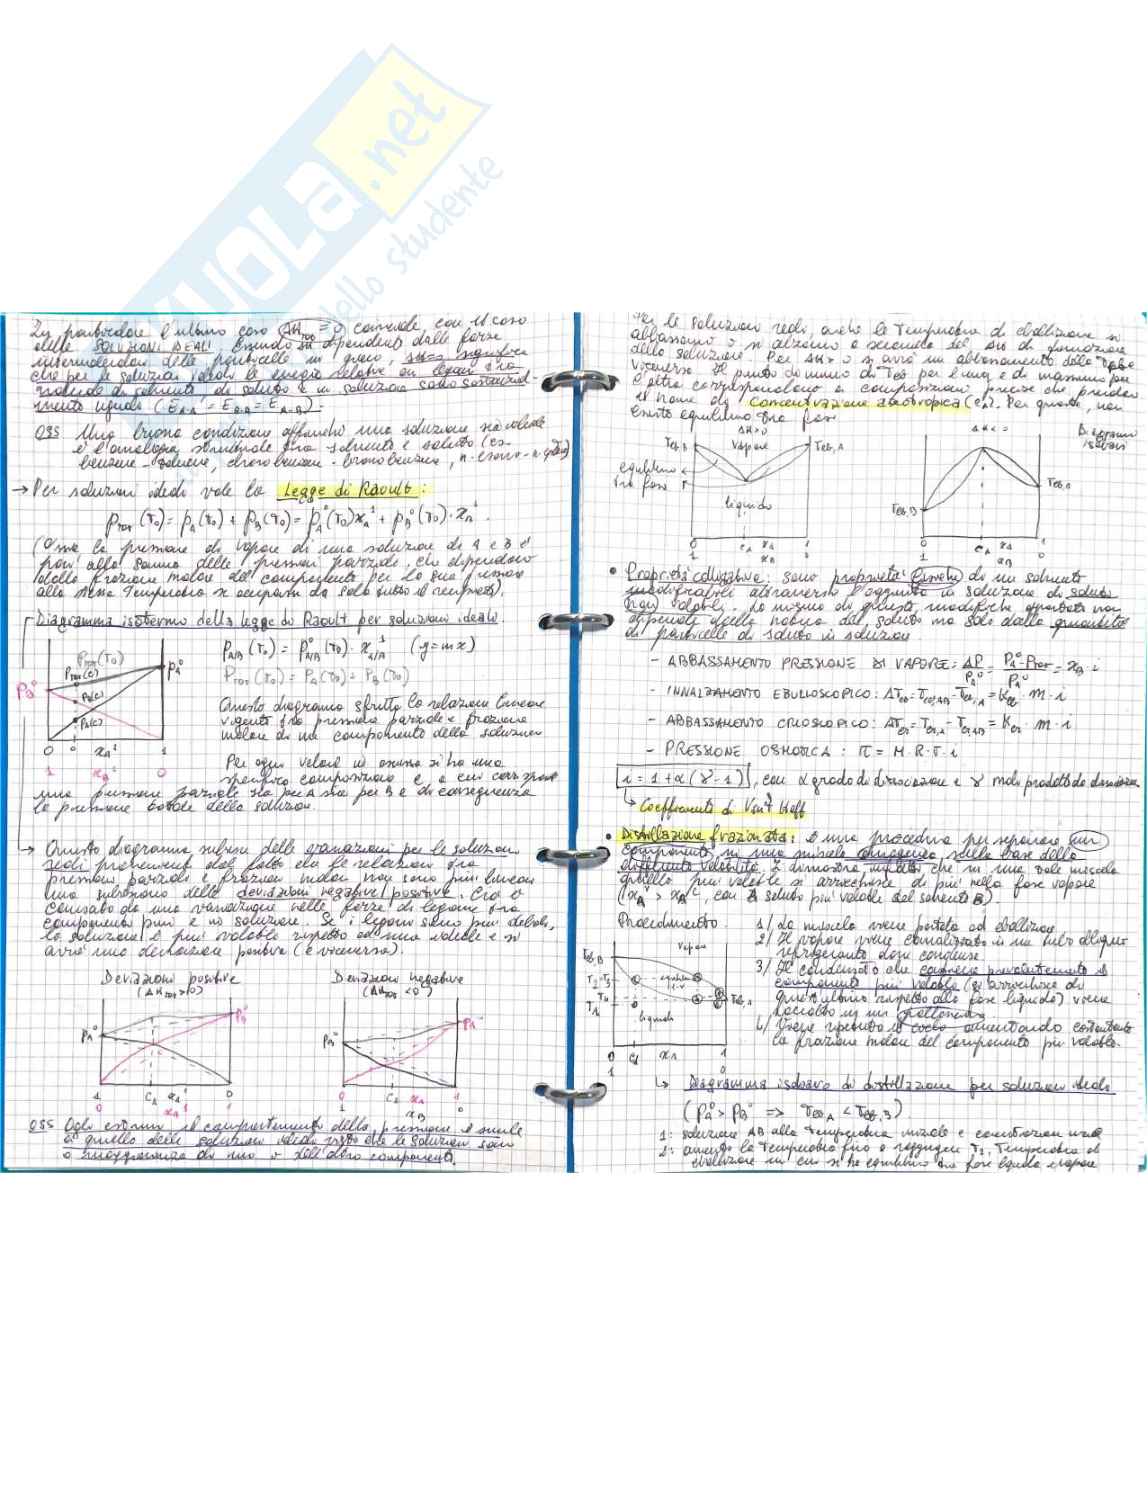 KUOLA.net
dello studente
In particolare l'ultimo caso ΔHTOT = 0 coincide con il caso
delle SOLUZIONI IDEALI. Essendo dipendenti dalle forze
intermolecolari delle particelle in gioco,
che per le soluzioni ideali le energie relative ai legami fra
molecole di solvente, di soluto e in soluzione sono sostanzial
mente uguali (EA-A = EB-B = EA-B).
OSS Una buona condizione affinché una soluzione sia ideale
è l'analogia strutturale fra solvente e soluto (es.
benzene - toluene, clorobenzene - bromobenzene,
→ Per soluzioni ideali vale la Legge di Raoult:
PTOT (T0) = PA (T0) + PB (T0) = P°A (T0) xA + P°B (T0) · xB
(Ossia la pressione di vapore di una soluzione di A e B è
pari alla somma delle pressioni parziali, che dipendono
dalla frazione molare del componente per la sua pressione
alla stessa temperatura se occupasse da solo tutto il recipiente).
Diagramma isotermo della legge di Raoult per soluzioni ideali
PTOT (T0)
PTOT (C)
P°A
P°B
PB(C)
PA(C)
0 xA 1
1 xB 0
PA/B (T0) = P°A/B (T0) · xA/B (y = mx)
PTOT (T0) = PA (T0) + PB (T0)
Questo diagramma sfrutta la relazione lineare
vigente fra pressione parziale e frazione
molare di un componente della soluzione
Per ogni valore in esame si ha una
specifica composizione e a cui corrisponde
una pressione parziale sia per A sia per B e di conseguenza
la pressione totale della soluzione.
→ Questo diagramma subisce delle variazioni per le soluzioni
reali provenienti dal fatto che le relazioni fra
pressioni parziali e frazioni molari non sono più lineari
ma subiscono delle deviazioni negative/positive. Ciò è
causato da una variazione nelle forze di legame fra
componenti puri e in soluzione. Se i legami sono più deboli,
la soluzione è più volatile rispetto ad una ideale e si
avrà una deviazione positiva (e viceversa).
Deviazioni positive
(ΔHTOT > 0)
Deviazioni negative
(ΔHTOT < 0)
P°A
P°B
1 CA xA 0
0 xA 1
P°B
P°A
0 CA xA 1
1 xB 0
OSS Agli estremi il comportamento della pressione è simile
a quello delle soluzioni ideali visto che le soluzioni sono
a maggioranza di uno o dell'altro componente.
Per le soluzioni reali, anche le temperature di ebollizione si
abbassano o si alzano a seconda del ΔH di formazione
della soluzione. Per ΔH > 0 si avrà un abbassamento della Teb e
viceversa. Il punto di minimo di Teb per l'una e di massimo per
l'altra corrispondono a composizioni precise che prendono
il nome di concentrazione azeotropica (CA). Per queste, non
esiste equilibrio fra fasi
ΔH > 0
Teb,B
Vapore
Teb,A
equilibrio
tra fasi
liquido
0 CA xA 1
1 xB 0
ΔH < 0
Diagrammi
isobari
Teb,B
Teb,A
0 CA xA 1
1 xB 0
• Proprietà colligative: sono proprietà fisiche di un solvente
modificabili attraverso l'aggiunta in soluzione di soluto
non volatile. La misura di queste modifiche apportate non
dipende dalla natura del soluto ma solo dalla quantità
di particelle di soluto in soluzione
- ABBASSAMENTO PRESSIONE DI VAPORE: ΔP/P°A = P°A - PTOT/P°A = xB · i
- INNALZAMENTO EBULLIOSCOPICO: ΔTeb = Teb,A+B - Teb,A = Keb · m · i
- ABBASSAMENTO CRIOSCOPICO: ΔTcr = Tcr,A - Tcr,A+B = Kcr · m · i
- PRESSIONE OSMOTICA: π = M · R · T · i
i = 1 + α (γ - 1), con α grado di dissociazione e γ moli prodotte da dissociazione
↳ Coefficiente di Van't Hoff
• Distillazione frazionata: è una procedura per separare un
componente in una miscela omogenea sulla base della
differente volatilità. Si dimostra infatti che in una tale miscela
quello più volatile si arricchisce di più nella fase vapore
Procedimento
1/ La miscela viene portata ad ebollizione
2/ Il vapore viene canalizzato in un tubo obliquo
refrigerante dove condensa
3/ Il condensato che contiene prevalentemente il
componente più volatile (si arricchisce di
quest'ultimo rispetto alla fase liquida) viene
raccolto in un
4/ Viene ripetuto il ciclo aumentando costantemente
la frazione molare del componente più volatile.
Teb,B
Vapore
liquido
Teb,A
0 CA xA 1
1 0
↳ Diagramma isobaro di distillazione per soluzioni ideali
(P°A > P°B => Teb,A < Teb,B)
1: soluzione AB alla temperatura iniziale e concentrazione iniziale
2: aumento la temperatura fino a raggiungere T2, temperatura di
ebollizione in cui si ha equilibrio tra fase liquida e vapore